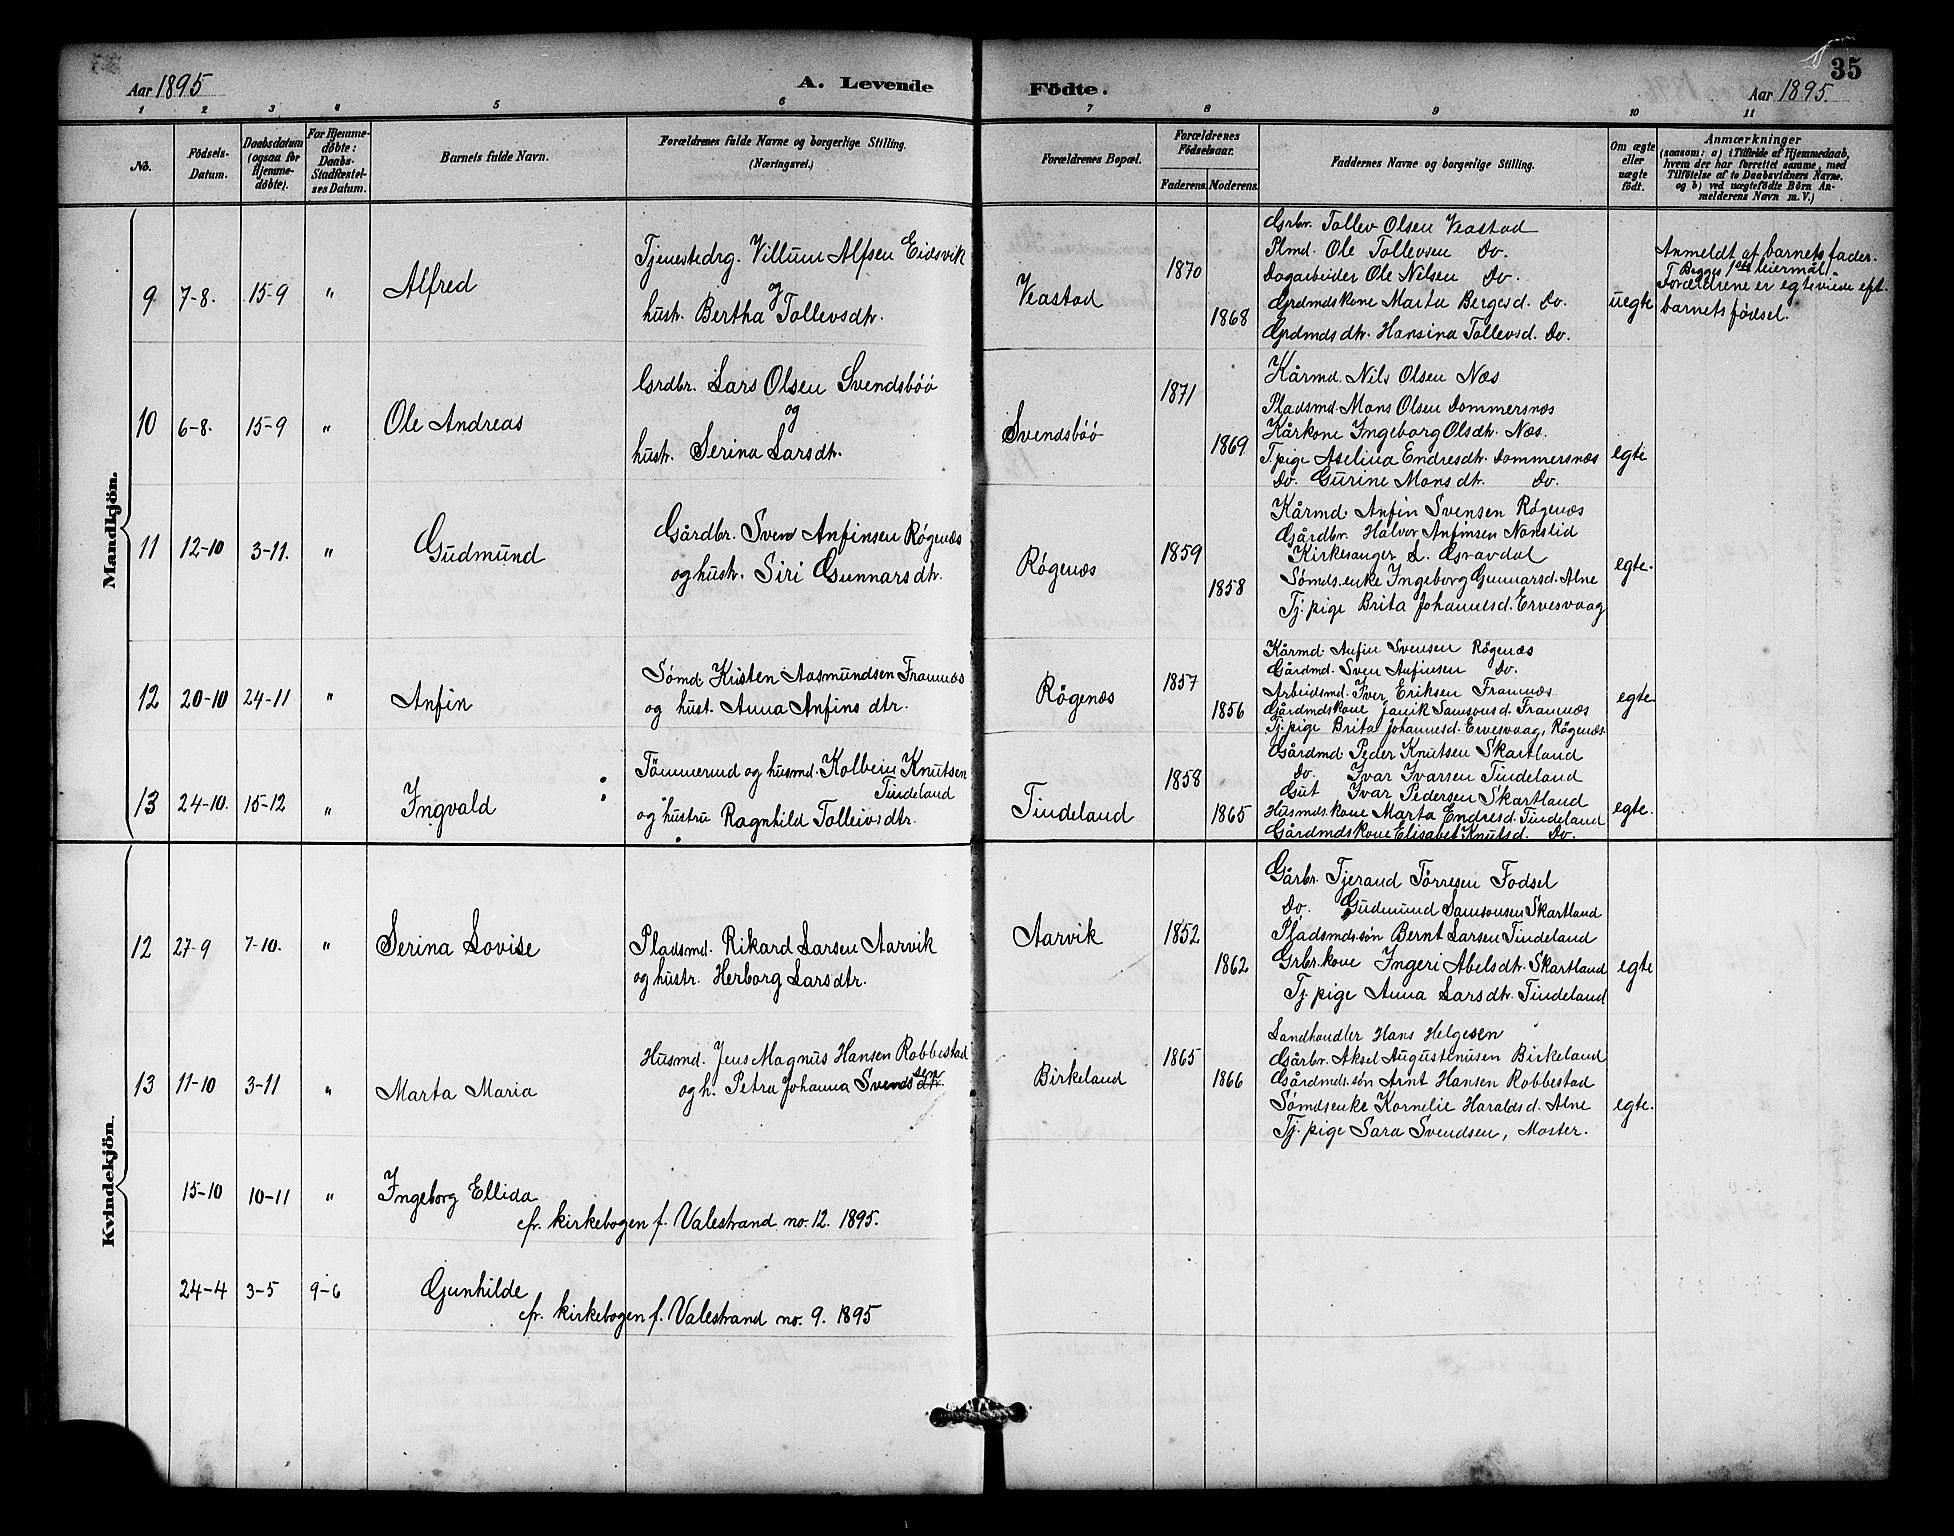 Aar 1895
A. Levende
Födte.
35
Aar 1895.
1 2 3 4 5 6 7 8 9 10 11
No.
Födsels-Datum.
Daabsdatum (ogsaa for Hjemme-döbte).
For Hjemme-döbte: Daabs-Stadfæstel-ses Datum.
Barnets fulde Navn.
Forældrenes fulde Navne og borgerlige Stilling. (Næringsvei.)
Forældrenes Bopæl.
Forældrenes Födselsaar.
Faderens. Moderens.
Faddernes Navne og borgerlige Stilling.
Om ægte eller uægte födt.
Anmærkninger
(saasom: a) i Tilfælde af Hjemmedaab, hvem der har forrettet samme, med Tilföielse af to Daabsvidners Navne. og b) ved uægtefödte Börn An-melderens Navn m. V.)
Mandkjön.
9 7-8. 15-9 " Alfred
Tjenestedrg. Villum Alfsen Eidsvik
og
hustr. Bertha Tollevsdtr.
Veastad
1870
1868
Grbr. Tollev Olsen Veastad
Plmd. Ole Tollevsen Do.
Dagarbeider Ole Nilsen Do.
Grdmdskone Marta Bergesd. Do.
Grdmdsdtr. Hansina Tollevsd. Do.
uegte
Anmeldt af barnets fader.
Begges 1ste leiermål.
Forældrene er egteviede eft.
barnets fødsel.
10 6-8. 15-9 " Ole Andreas
Grdbr. Lars Olsen Svendsbøø
og
hustr. Serina Larsdtr.
Svendsbøø
1871
1869
Kårmd. Nils Olsen Næs
Pladsmd. Mons Olsen Dommersnæs
Kårkone Ingeborg Olsdtr. Næs.
T. pige Aselina Endresdtr. Dommersnæs
Do. Gurine Monsdtr. Do.
egte
11 12-10 3-11. " Gudmund
Gårdbr. Sven Anfinsen Røgenæs
og hustr. Siri Gunnarsdtr.
Røgenæs
1859
1858
Kårmd. Anfin Svensen Røgenæs
Gårdbr. Halvor Anfinsen Nonstid
Kirkesanger L. Gravdal
Sømds.enke Ingeborg Gunnarsd. Alne
Tj. pige Brita Johannesd. Ervesvaag
egte.
12 20-10 24-11 " Anfin
Sømd. Kristen Aasmundsen Framnæs
og hust. Anna Anfinsdtr.
Røgenæs
1857
1856
Kårmd. Anfin Svensen Røgenæs
Gårdmd. Sven Anfinsen Do.
Arbeidsmd. Iver Eriksen Framnæs
Gårdmdskone Janik Samsonsd. Framnæs
Tj. pige Brita Johannesd. Ervesvaag, Røgenæs.
egte
13 24-10. 15-12 " Ingvald
Tømmermd og husmd. Kolbein Knutsen
Tindeland
og hustru Ragnhild Tolleivsdtr.
Tindeland
1858
1865
Gårdmd. Peder Knutsen Skartland
Do. Ivar Ivarsen Tindeland
Gut Ivar Pedersen Skartland
Husmdskone Marta Endresd. Tindeland
Gårdmdskone Elisabet Knutsd. Do.
egte.
Kvindekjön.
12 27-9 7-10. " Serina Lovise
Pladsmd. Rikard Larsen Aarvik
og hustr. Herborg Larsdtr.
Aarvik
1852
1862
Gårbr. Tjerand Tørresen Fodsel
Do. Gudmund Samsonsen Skartland
Pladsmds.søn Bernt Larsen Tindeland
Grbr.kone Ingeri Abelsdtr. Skartland
Tj. pige Anna Larsdtr. Tindeland
egte
13 11-10 3-11 " Marta Maria
Husmd. Jens Magnus Hansen Robbestad
og h. Petra Johanna Svendsen.
Birkeland
1865
1866
Landhandler Hans Helgesen
Gårbr. Aksel Augustinusen Birkeland
Gårdmds.søn Arnt Hansen Robbestad
Sømdsenke Kornelie Haraldsd. Alne
Tj. pige Sara Svendsen, Moster.
egte.
15-10 10-11 " Ingeborg Ellida
cfr. kirkebogen f. Valestrand no. 12. 1895.
24-4 3-5 9-6 Gunhilde
cfr. kirkebogen f. Valestrand no. 9. 1895